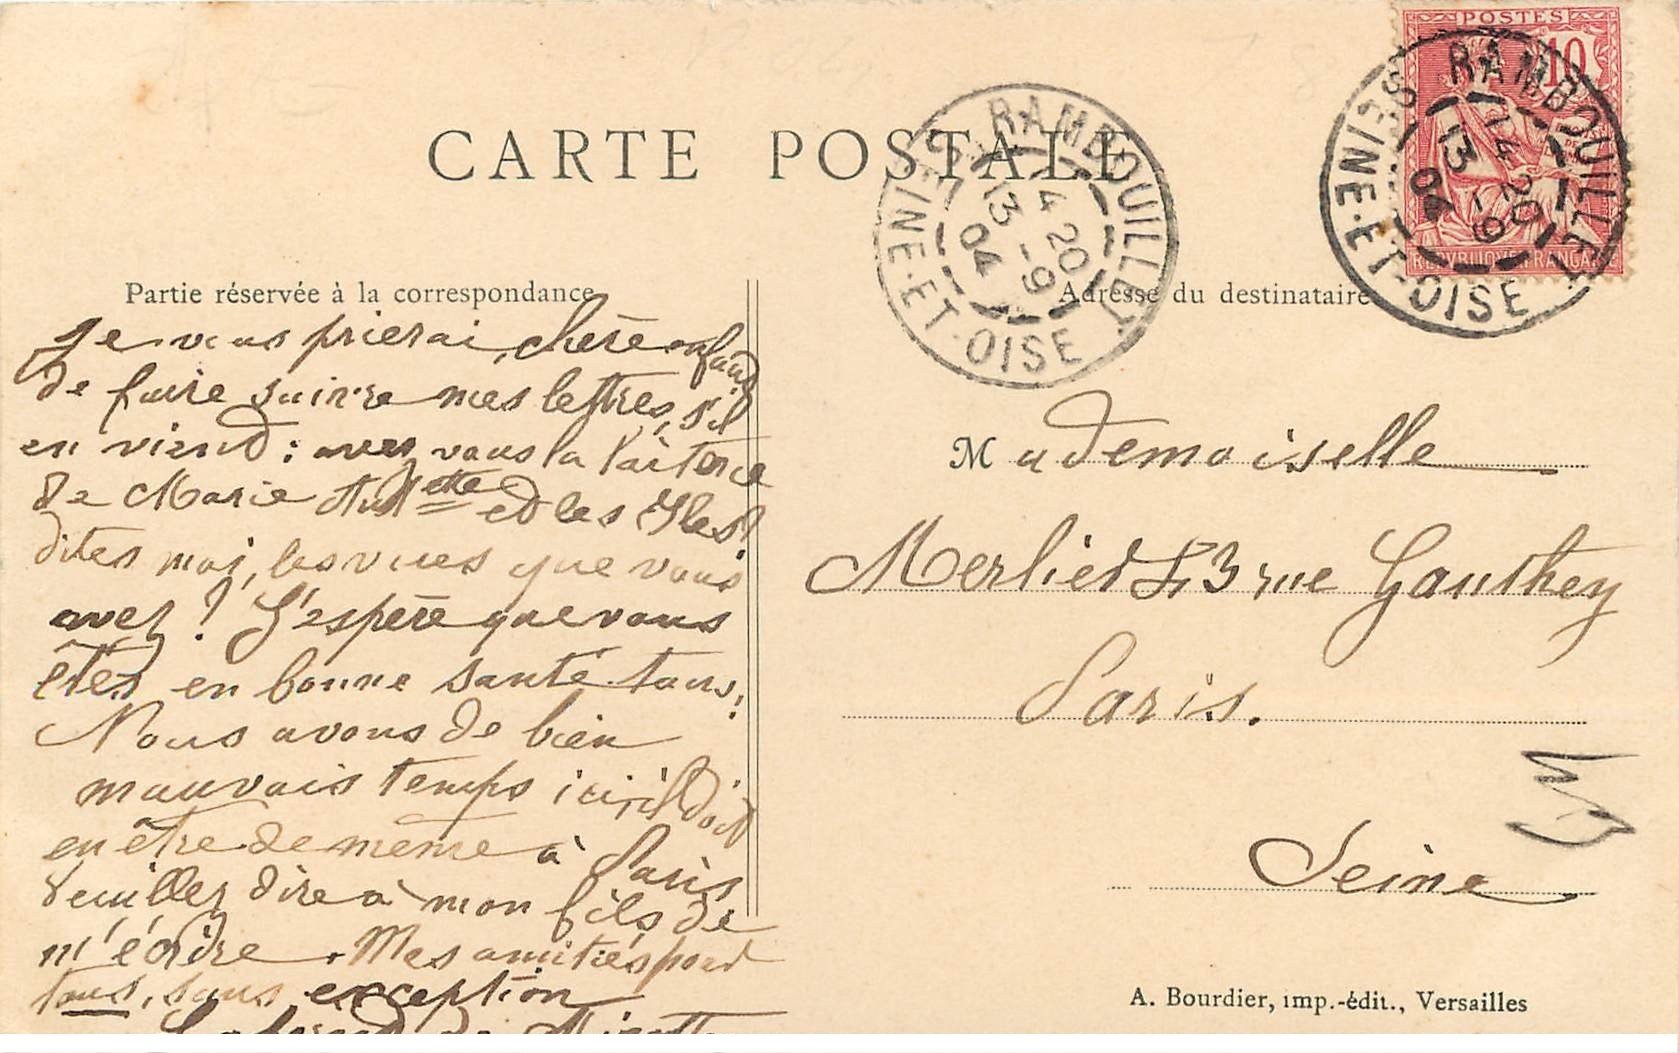 CARTE POSTALE
Partie réservée à la correspondance
Je vous prierai, chère enfant
de faire suivre mes lettres, s'il
en viend : avez vous la
de Marie Antette et les
dites moi, les vues que vous
avez ? J'espère que vous
êtes en bonne santé tous.
Nous avons de bien
mauvais temps ici, il doit
en être de même à Paris
Veuillez dire à mon fils de
m'écrire. Mes amitiés pour
tous, sans exception
RAMBOUILLET
4 20
13 -9
04
SEINE-ET-OISE
POSTES
10
REPVBLIQVE FRANÇAISE
RAMBOUILLET
14 20
13 -9
04
SEINE-ET-OISE
Adresse du destinataire
Mademoiselle
Merliet 43 rue Gauthey
Paris.
Seine
A. Bourdier, imp.-édit., Versailles